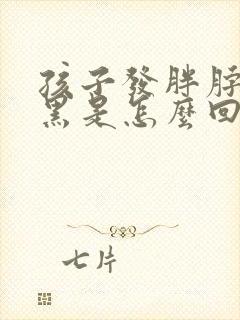 孩子發胖脖
黑是怎麼回
七片